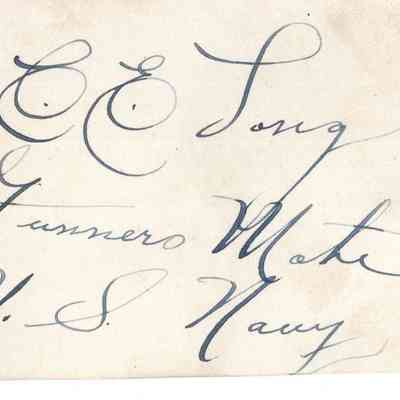 C. E. Long
Gunners Mate
U. S. Navy